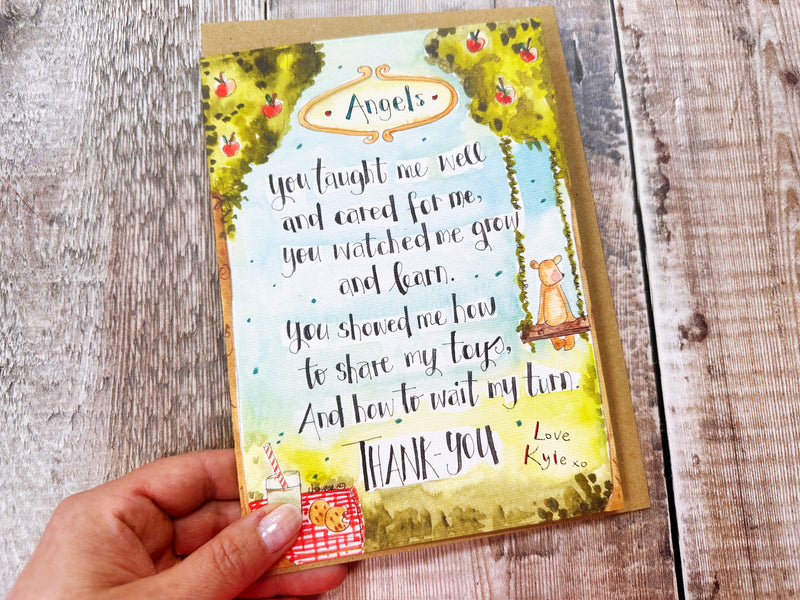 Angels
you taught me well
and cared for me,
you watched me grow
and learn.
you showed me how
to share my toys,
And how to wait my turn.
THANK-YOU
Love
Kyle xo